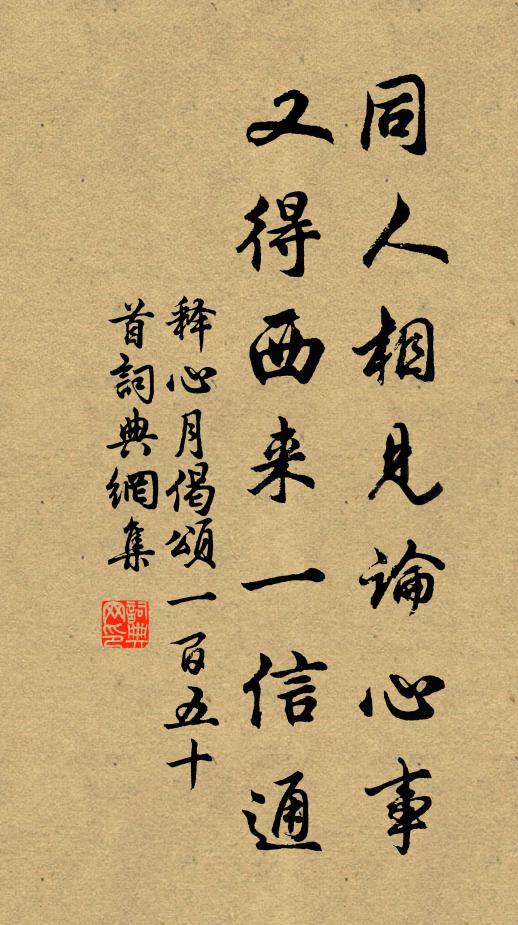 同人相見論心事
又得西来一信通
释心月偈頌一百五十
首詞典網集
詞典
网印